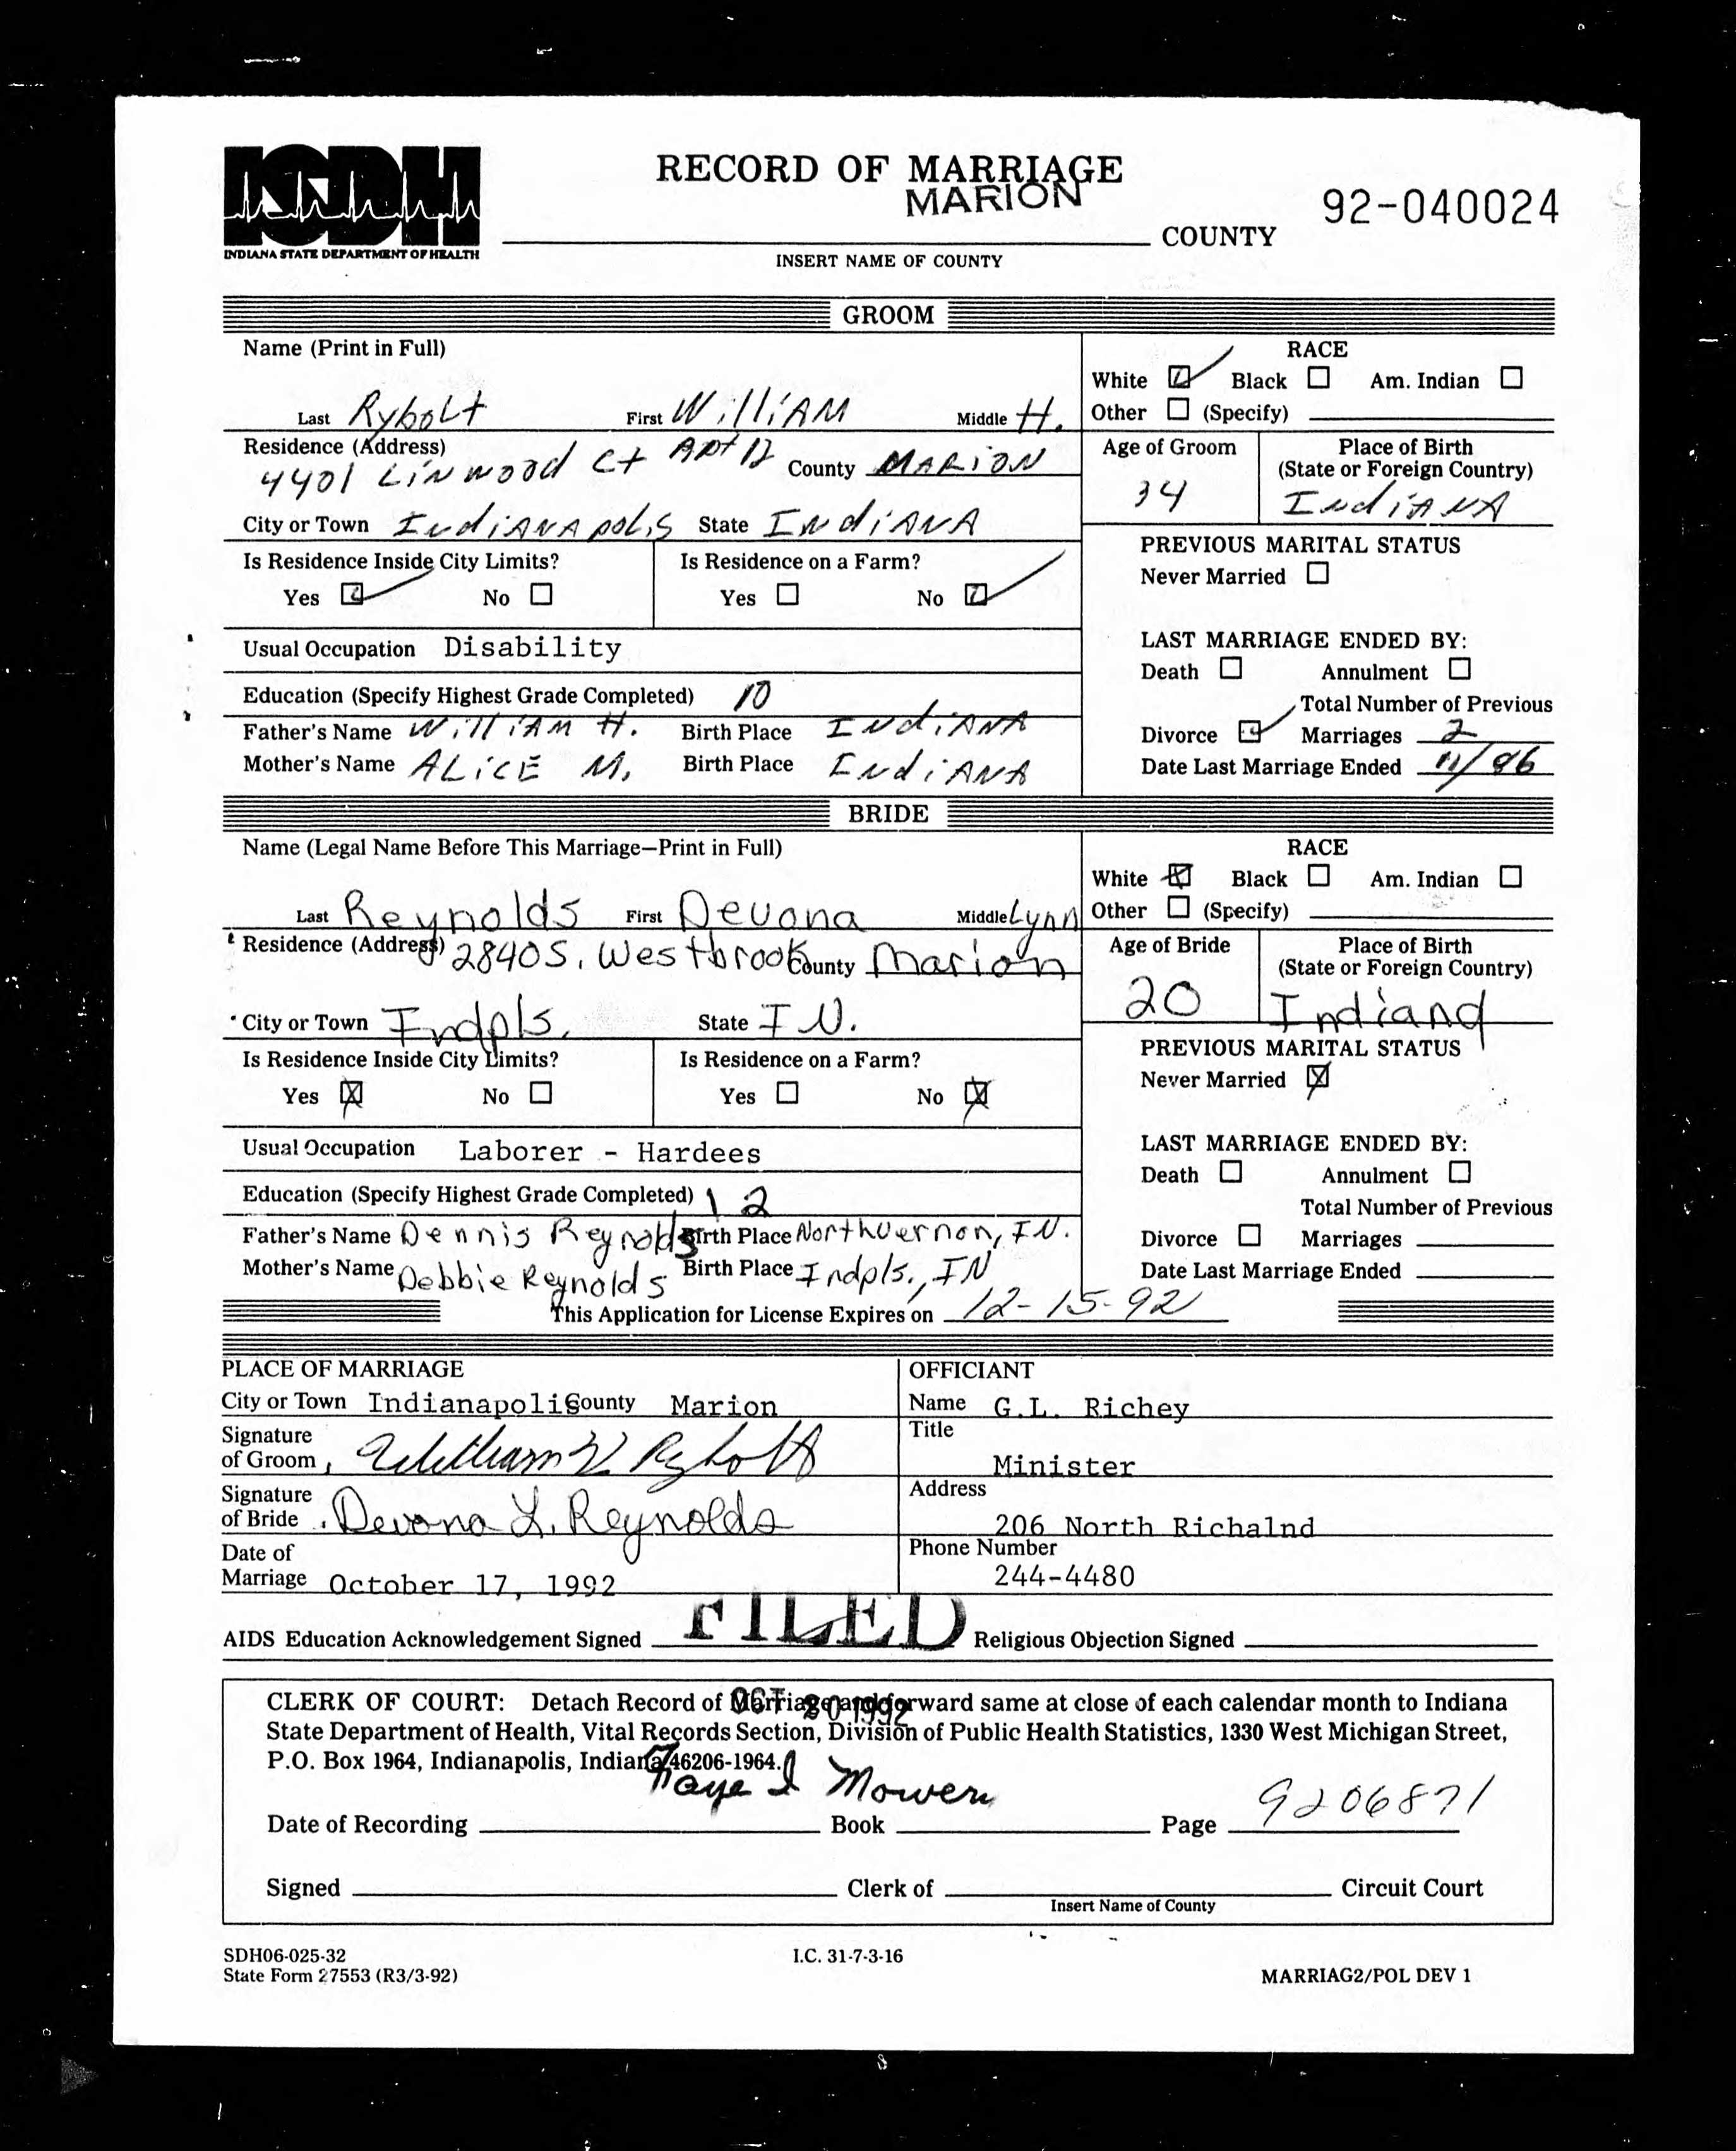 ISDH
INDIANA STATE DEPARTMENT OF HEALTH
RECORD OF MARRIAGE
MARION COUNTY
INSERT NAME OF COUNTY
92-040024
GROOM
Name (Print in Full)
Last Rybolt First William Middle H.
RACE
White ☑ Black ☐ Am. Indian ☐
Other ☐ (Specify)
Residence (Address) 4401 Linwood Ct Apt 12 County MARION
Age of Groom 34
Place of Birth
(State or Foreign Country)
Indiana
City or Town Indianapolis State Indiana
Is Residence Inside City Limits?
Yes ☑ No ☐
Is Residence on a Farm?
Yes ☐ No ☑
PREVIOUS MARITAL STATUS
Never Married ☐
Usual Occupation Disability
Education (Specify Highest Grade Completed) 10
Father's Name William H. Birth Place Indiana
Mother's Name ALICE M. Birth Place Indiana
LAST MARRIAGE ENDED BY:
Death ☐ Annulment ☐
Total Number of Previous
Divorce ☑ Marriages 2
Date Last Marriage Ended 11/86
BRIDE
Name (Legal Name Before This Marriage—Print in Full)
Last Reynolds First Devona Middle Lynn
RACE
White ☒ Black ☐ Am. Indian ☐
Other ☐ (Specify)
Residence (Address) 2840 S. Westbrook County Marion
Age of Bride 20
Place of Birth
(State or Foreign Country)
Indiana
City or Town Indpls. State IN.
Is Residence Inside City Limits?
Yes ☒ No ☐
Is Residence on a Farm?
Yes ☐ No ☒
PREVIOUS MARITAL STATUS
Never Married ☒
Usual Occupation Laborer - Hardees
Education (Specify Highest Grade Completed) 12
Father's Name Dennis Reynolds Birth Place North Vernon, IN.
Mother's Name Debbie Reynolds Birth Place Indpls., IN
LAST MARRIAGE ENDED BY:
Death ☐ Annulment ☐
Total Number of Previous
Divorce ☐ Marriages
Date Last Marriage Ended
This Application for License Expires on 12-15-92
PLACE OF MARRIAGE
City or Town Indianapolis County Marion
Signature
of Groom William H Rybolt
Signature
of Bride Devona L. Reynolds
Date of
Marriage October 17, 1992
OFFICIANT
Name G.L. Richey
Title
Minister
Address
206 North Richalnd
Phone Number
244-4480
AIDS Education Acknowledgement Signed FILED Religious Objection Signed
OCT 20 1992
CLERK OF COURT: Detach Record of Marriage and forward same at close of each calendar month to Indiana
State Department of Health, Vital Records Section, Division of Public Health Statistics, 1330 West Michigan Street,
P.O. Box 1964, Indianapolis, Indiana 46206-1964.
Faye I Mowery
Date of Recording Book Page 9206871
Signed Clerk of Circuit Court
Insert Name of County
SDH06-025-32
State Form 27553 (R3/3-92)
I.C. 31-7-3-16
MARRIAG2/POL DEV 1